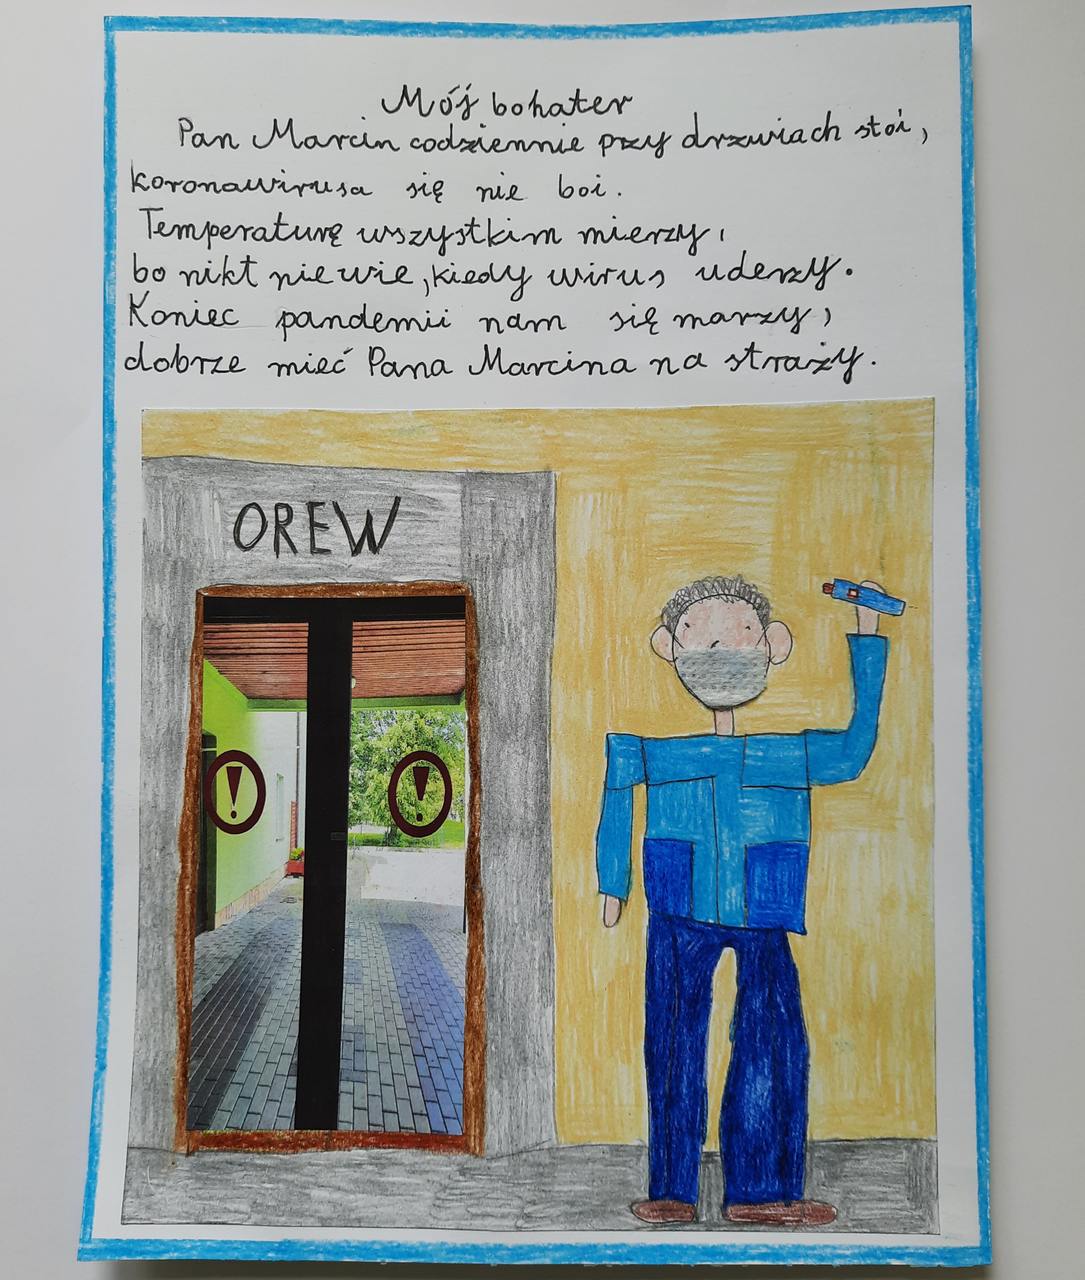 Mój bohater
Pan Marcin codziennie przy drzwiach stoi,
koronawirusa się nie boi.
Temperaturę wszystkim mierzy,
bo nikt nie wie, kiedy wirus uderzy.
Koniec pandemii nam się marzy,
dobrze mieć Pana Marcina na straży.
OREW